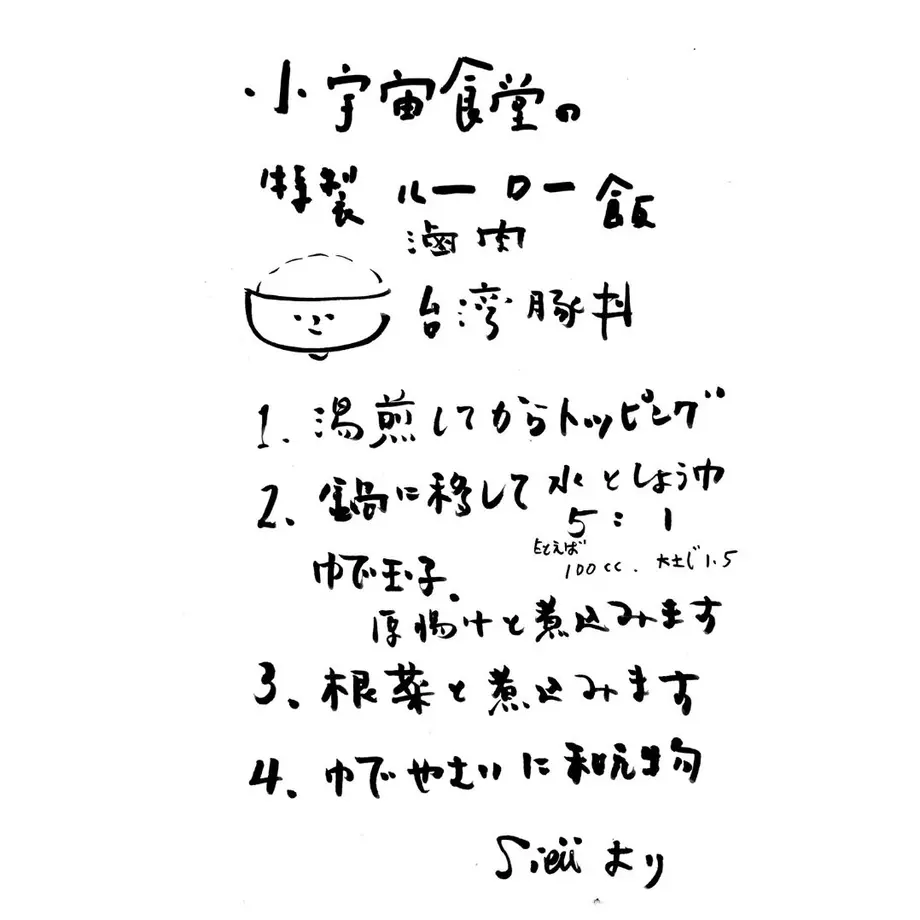 小宇宙食堂の
特製 ルーロー飯
滷肉
台湾豚丼
1. 湯煎してからトッピング
2. 鍋に移して 水としょうゆ
5 : 1
たとえば
100cc. 大さじ1.5
ゆで玉子.
厚揚げと煮込みます
3. 根菜と煮込みます
4. ゆでやさいに和え物
より